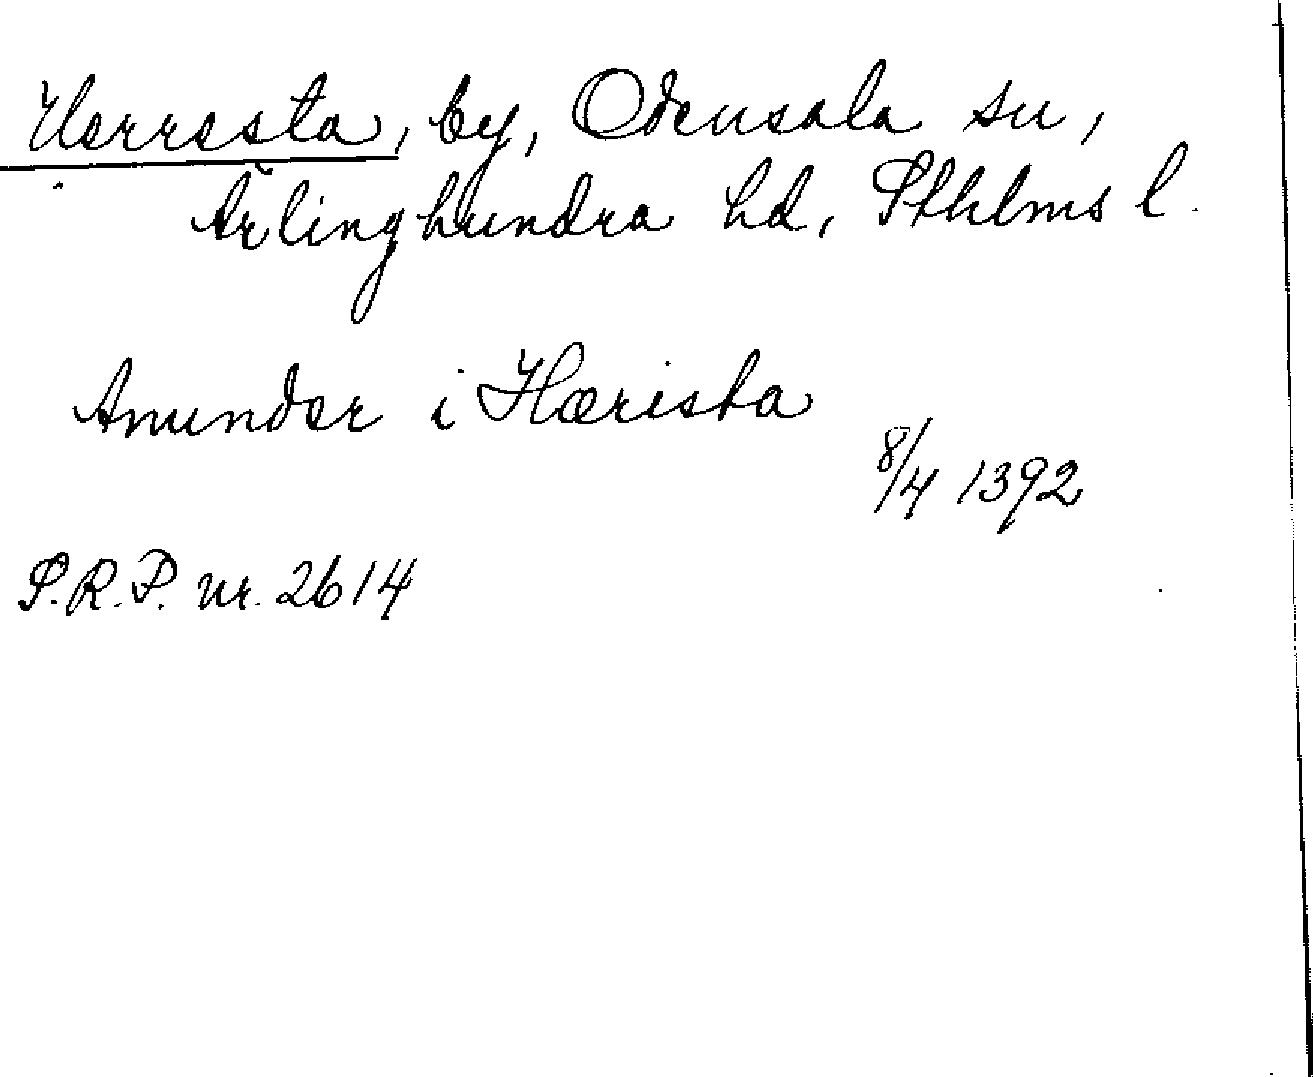 Herresta, by, Odensala sn,
Ärlinghundra hd, Sthlms l.
Anunder i Hærista
8/4 1392
S.R.P. nr. 2614